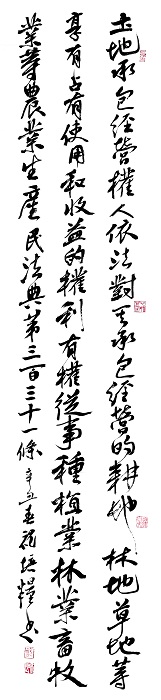 土地承包經營權人依法對其承包經營的耕地林地草地等
享有占有使用和收益的權利有權從事種植業林業畜牧
業等農業生產民法典第三百三十一條辛丑春